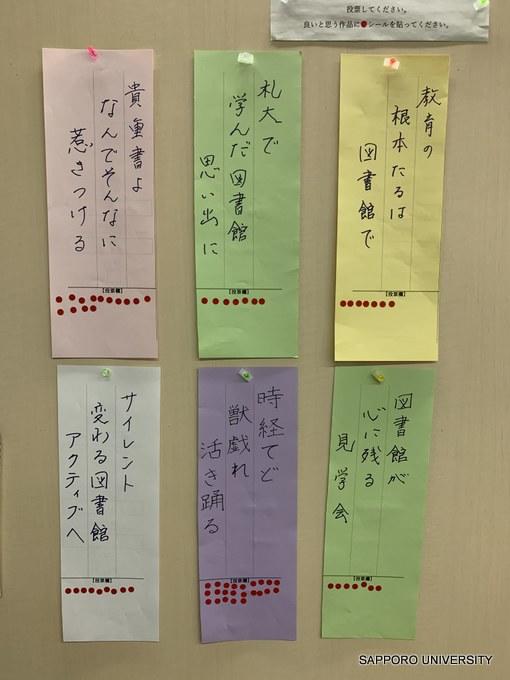 投票してください。
良いと思う作品に●シールを貼ってください。
教育の
根本たるは
図書館で
【投票欄】
札大で
学んだ図書館
思い出に
【投票欄】
貴重書よ
なんでそんなに
惹きつける
【投票欄】
図書館が
心に残る
見学会
【投票欄】
時経てど
獣戯れ
活き踊る
【投票欄】
サイレント
変わる図書館
アクティブへ
【投票欄】
SAPPORO UNIVERSITY